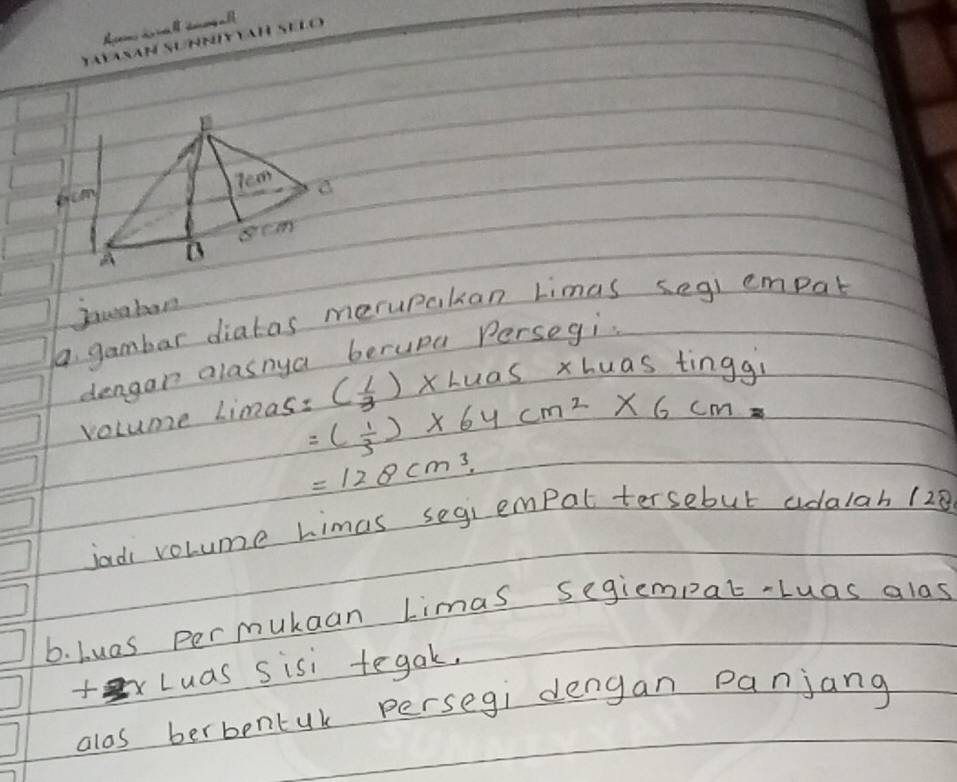 YAYASAN SUNNIYYAH SELO
E
6cm
7cm
C
8cm
A
B
jawaban
a. gambar diatas merupakan Limas segi empat
dengan alasnya berupa Persegi.
volume Limas = (1/3) x Luas x Luas tinggi
= (1/3) x 64 cm² x 6 cm =
= 128 cm³.
jadi volume Limas segi empat tersebut adalah 128
b. Luas Permukaan Limas Segiempat = Luas alas
+ x Luas sisi tegak.
alas berbentuk persegi dengan Panjang